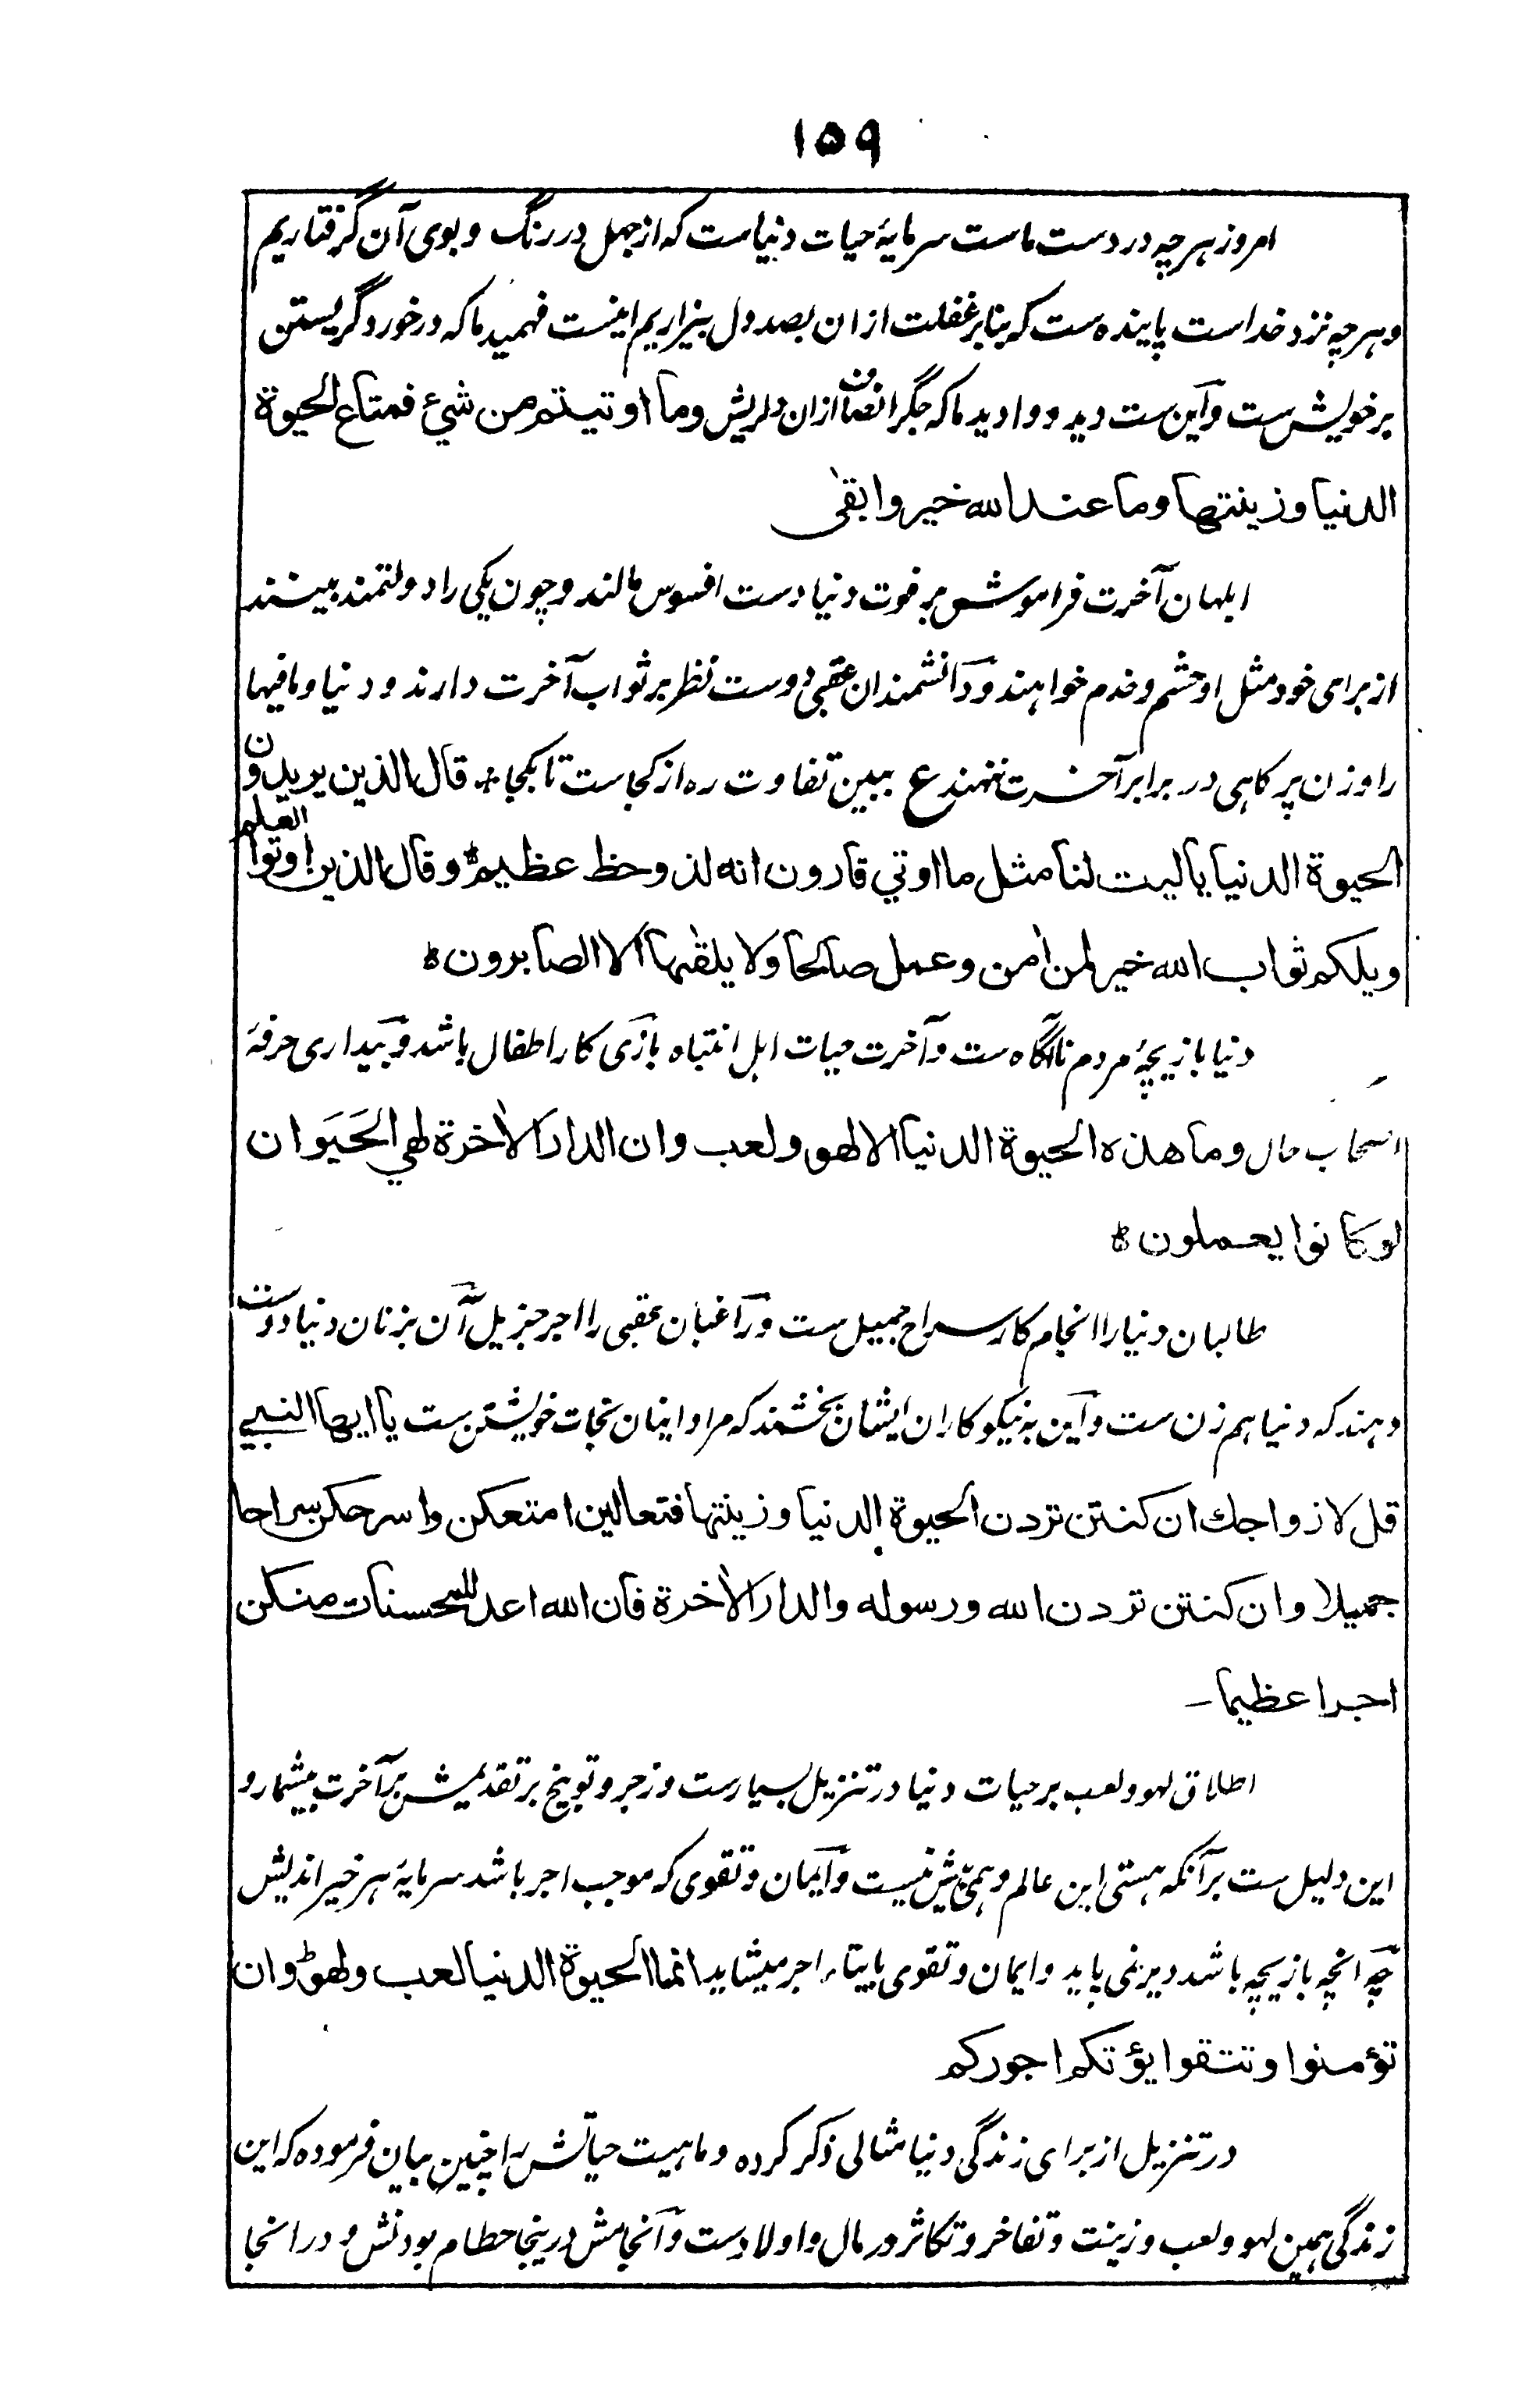 ۱۵۹
امروز هر چه در دست ماست سرمایهٔ حیات دنیاست که از جهل در رنگ و بوی آن گرفتاریم
و هر چه نزد خداست پاینده ست که بنابر غفلت ازان بصد دل بیزاریم اینست فهمید ما که در خورد گریستن
بر خویش ست و آین ست دید و وادید ما که جگر انصاف ازان دلریش وما اوتیتم من شيء فمتاع الحیوة
الدنیا وزینتها وما عند الله خیر وابقی
ابلهان آخرت فراموش بر فوت دنیا دست افسوس مالند و چون یکی را دولتمند بینند
از برای خود مثل او حشم و خدم خواهند و دانشمندان عقبی دوست نظر بر ثواب آخرت دارند و دنیا و مافیها
را وزن پر کاهی در برابر آخرت ننهند ع ببین تفاوت ره از کجاست تا بکجا ٭ قال الذین یریدون
الحیوة الدنیا یالیت لنا مثل ما اوتي قارون انه لذو حظ عظیم ٥ وقال الذین اوتوا العلم
ویلکم ثواب الله خیر لمن اٰمن وعمل صالحا ولا یلقٰها الا الصابرون ٥
دنیا بازیچهٔ مردم ناآگاه ست و آخرت حیات اهل انتباه بازی کار اطفال باشد و بیداری حرفهٔ
اصحاب حال وما هذه الحیوة الدنیا الا لهو ولعب وان الدار الاٰخرة لهي الحَیَوان
لو کانوا یعملون ٥
طالبان دنیا را انجام کار سراح جمیل ست و راغبان عقبی را اجر جزیل آن بزنان دنیا دوست
دهند که دنیا هم زن ست و آین به نیکوکاران ایشان بخشند که مراد اینان نجات خویشتن ست یا ایها النبي
قل لازواجك ان کنتن تردن الحیوة الدنیا وزینتها فتعالین امتعکن واسرحکن سراحا
جمیلا وان کنتن تردن الله ورسوله والدار الاٰخرة فان الله اعد للمحسنات منکن
اجرا عظیما ۔
اطلاق لهو و لعب بر حیات دنیا در تنزیل بسیارست و زجر و توبیخ بر تقدیمش بر آخرت بیشمار و
این دلیل ست بر آنکه هستی این عالم و همی بیش نیست و آیمان و تقوی که موجب اجر باشد سرمایهٔ هر خیر اندیش
چه انچه بازیچه باشد دیر نمی پاید و ایمان و تقوی بایتاء اجر میشاید انما الحیوة الدنیا لعب ولهو ٥ وان
تؤمنوا وتتقوا یؤتکم اجورکم
در تنزیل از برای زندگی دنیا مثالی ذکر کرده و ماهیت حیاتش را چنین بیان فرموده که این
زندگی همین لهو و لعب و زینت و تفاخر و تکاثر در مال و اولادست و آنجامش درینجا حطام بودنش و در انجا